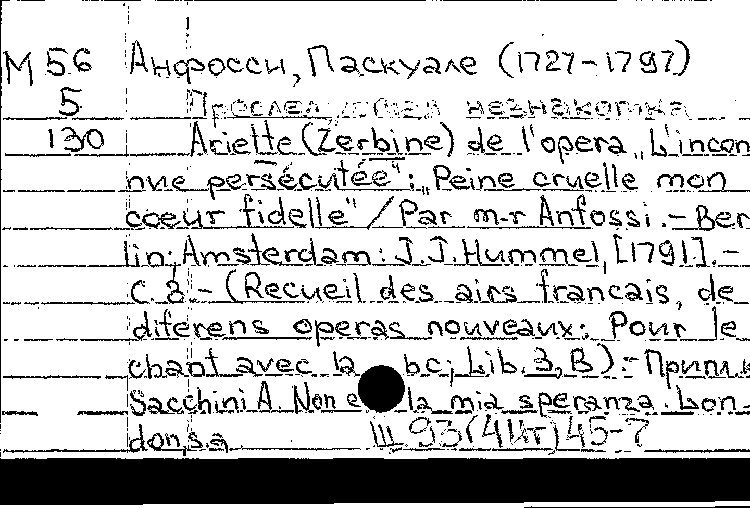 М 56 Анфосси, Паскуале (1727-1797)
5 Преследуемая незнакомка
130 Ariette (Zerbine) de l'opera „L'incon
nue persécutée": „Peine cruelle mon
coeur fidelle" / Par m-r Anfossi. - Ber
lin; Amsterdam: J.J. Hummel, [1791]. -
С. 8. - (Recueil des airs francais, de
diferens operas nouveaux: Pour le
chant avec la bc; Lib. 3, B). - Припл.к
Sacchini A. Non e la mia speranza. Lon-
don, s.a.
III 93(4Ит)45-7